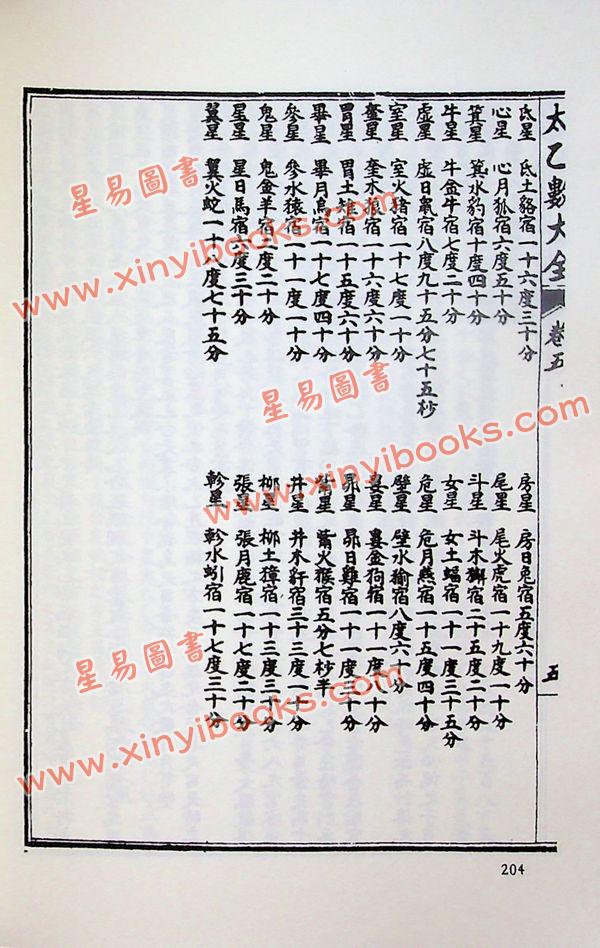 太乙數大全 卷五 五
氐星 氐土貉宿一十六度三十分 房星 房日兔宿五度六十分
心星 心月狐宿六度五十分 尾星 尾火虎宿一十九度一十分
箕星 箕水豹宿十度四十分 斗星 斗木獬宿二十五度二十分
牛星 牛金牛宿七度二十分 女星 女土蝠宿一十一度三十五分
虛星 虛日鼠宿八度九十五分七十五杪 危星 危月燕宿一十五度四十分
室星 室火猪宿一十七度一十分 壁星 壁水㺄宿八度六十分
奎星 奎木狼宿一十六度六十分 婁星 婁金狗宿一十一度十分
胃星 胃土雉宿一十五度六十分 昴星 昴日雞宿一十一度三十分
畢星 畢月烏宿一十七度四十分 觜星 觜火猴宿五分七杪半
參星 參水猿宿一十一度一十分 井星 井木犴宿三十三度一十分
鬼星 鬼金羊宿二度二十分 柳星 柳土獐宿一十三度三十分
星星 星日馬宿六度三十分 張星 張月鹿宿一十七度二十分
翼星 翼火蛇一十八度七十五分 軫星 軫水蚓宿一十七度三十分
204
星易圖書
www.xinyibooks.com
星易圖書
www.xinyibooks.com
星易圖書
www.xinyibooks.com